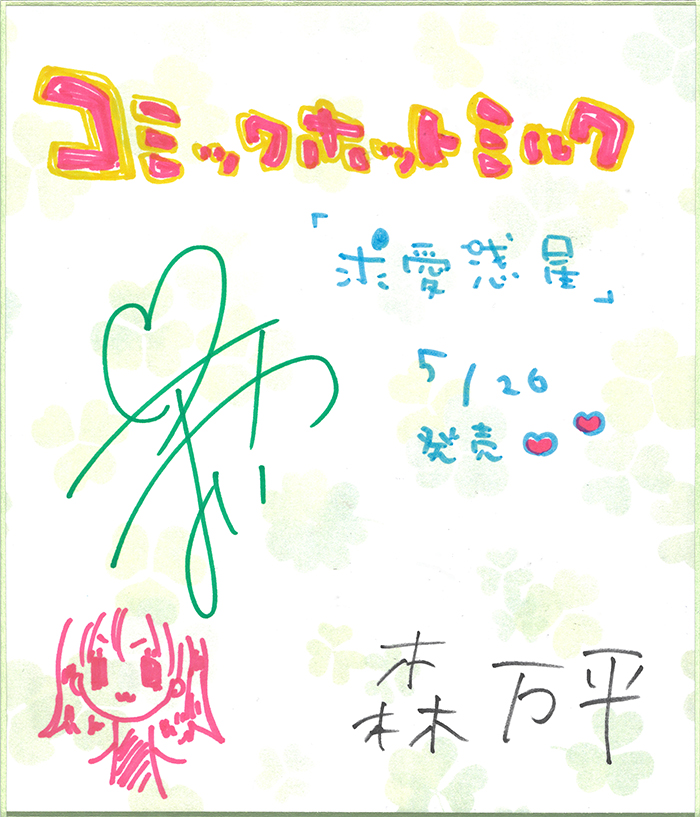 コミックホットミルク
「求愛惑星」
5/26
発売
森万平